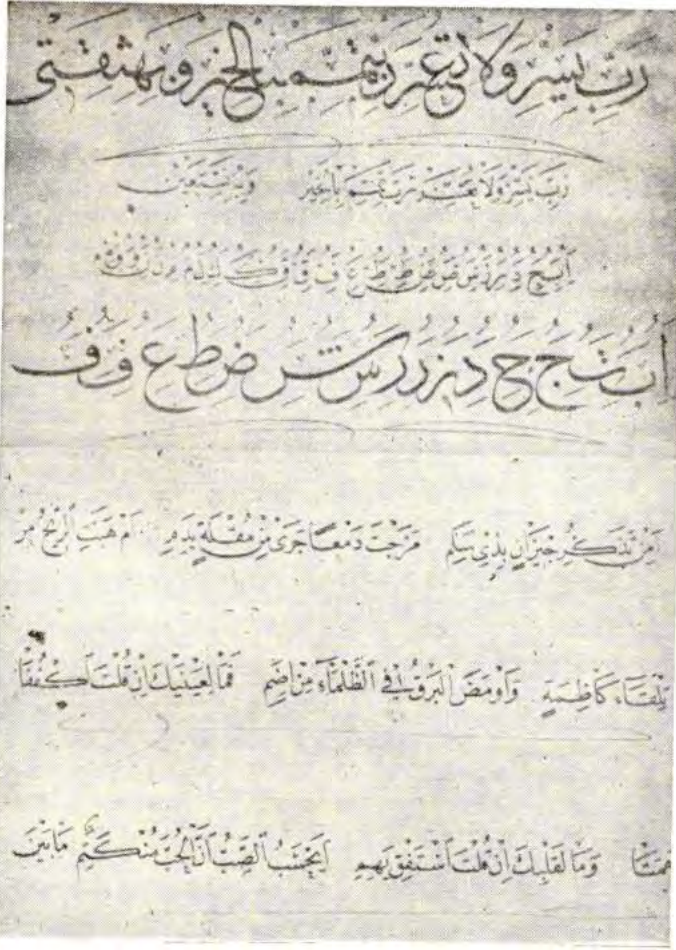 رَبِّ يَسِّرْ وَلَا تُعَسِّرْ رَبِّ تَمِّمْ بِالْخَيْرِ وَبِهِ ثِقَتِي
رَبِّ يَسِّرْ وَلَا تُعَسِّرْ رَبِّ تَمِّمْ بِالْخَيْرِ وَبِهِ نَسْتَعِين
اَمِنْ تَذَكُّرِ جِيرَانٍ بِذِى سَلَمِ مَزَجْتَ دَمْعًا جَرَى مِنْ مُقْلَةٍ بِدَمِ اَمْ هَبَّتِ الرِّيحُ مِنْ
تِلْقَاءِ كَاظِمَةٍ وَاَوْمَضَ الْبَرْقُ فِي الظَّلْمَاءِ مِنْ اِضَمِ فَمَا لِعَيْنَيْكَ اِنْ قُلْتَ اكْفُفَا
هَمَتَا وَمَا لِقَلْبِكَ اِنْ قُلْتَ اسْتَفِقْ يَهِمِ اَيَحْسَبُ الصَّبُّ اَنَّ الْحُبَّ مُنْكَتِمٌ مَا بَيْنَ